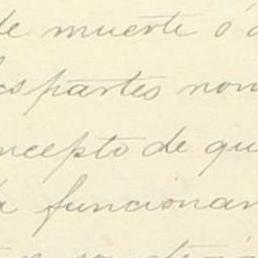 de muerte ó
partes nom
ncepto de qu
funcionan